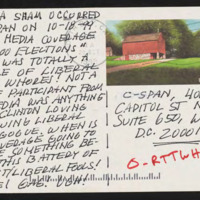 A SHAM OCCURRED
PAN ON 10-18-
MEDIA COVERAGE
00 ELECTIONS"
WAS TOTALLY A
LE OF LIBERAL
WHORES! NOT A
PARTICIPANT FROM
EDIA WAS ANYTHING
CLINTON LOVING
WING LIBERAL
GOGUE. WHEN IS
VERAGE GOING TO
OMETHING BE-
THIS BATTERY OF
ST/LIBERAL FOOLS!
UGH!
C-SPAN, 40
CAPITOL ST N
SUITE 650, W
D.C. 20001